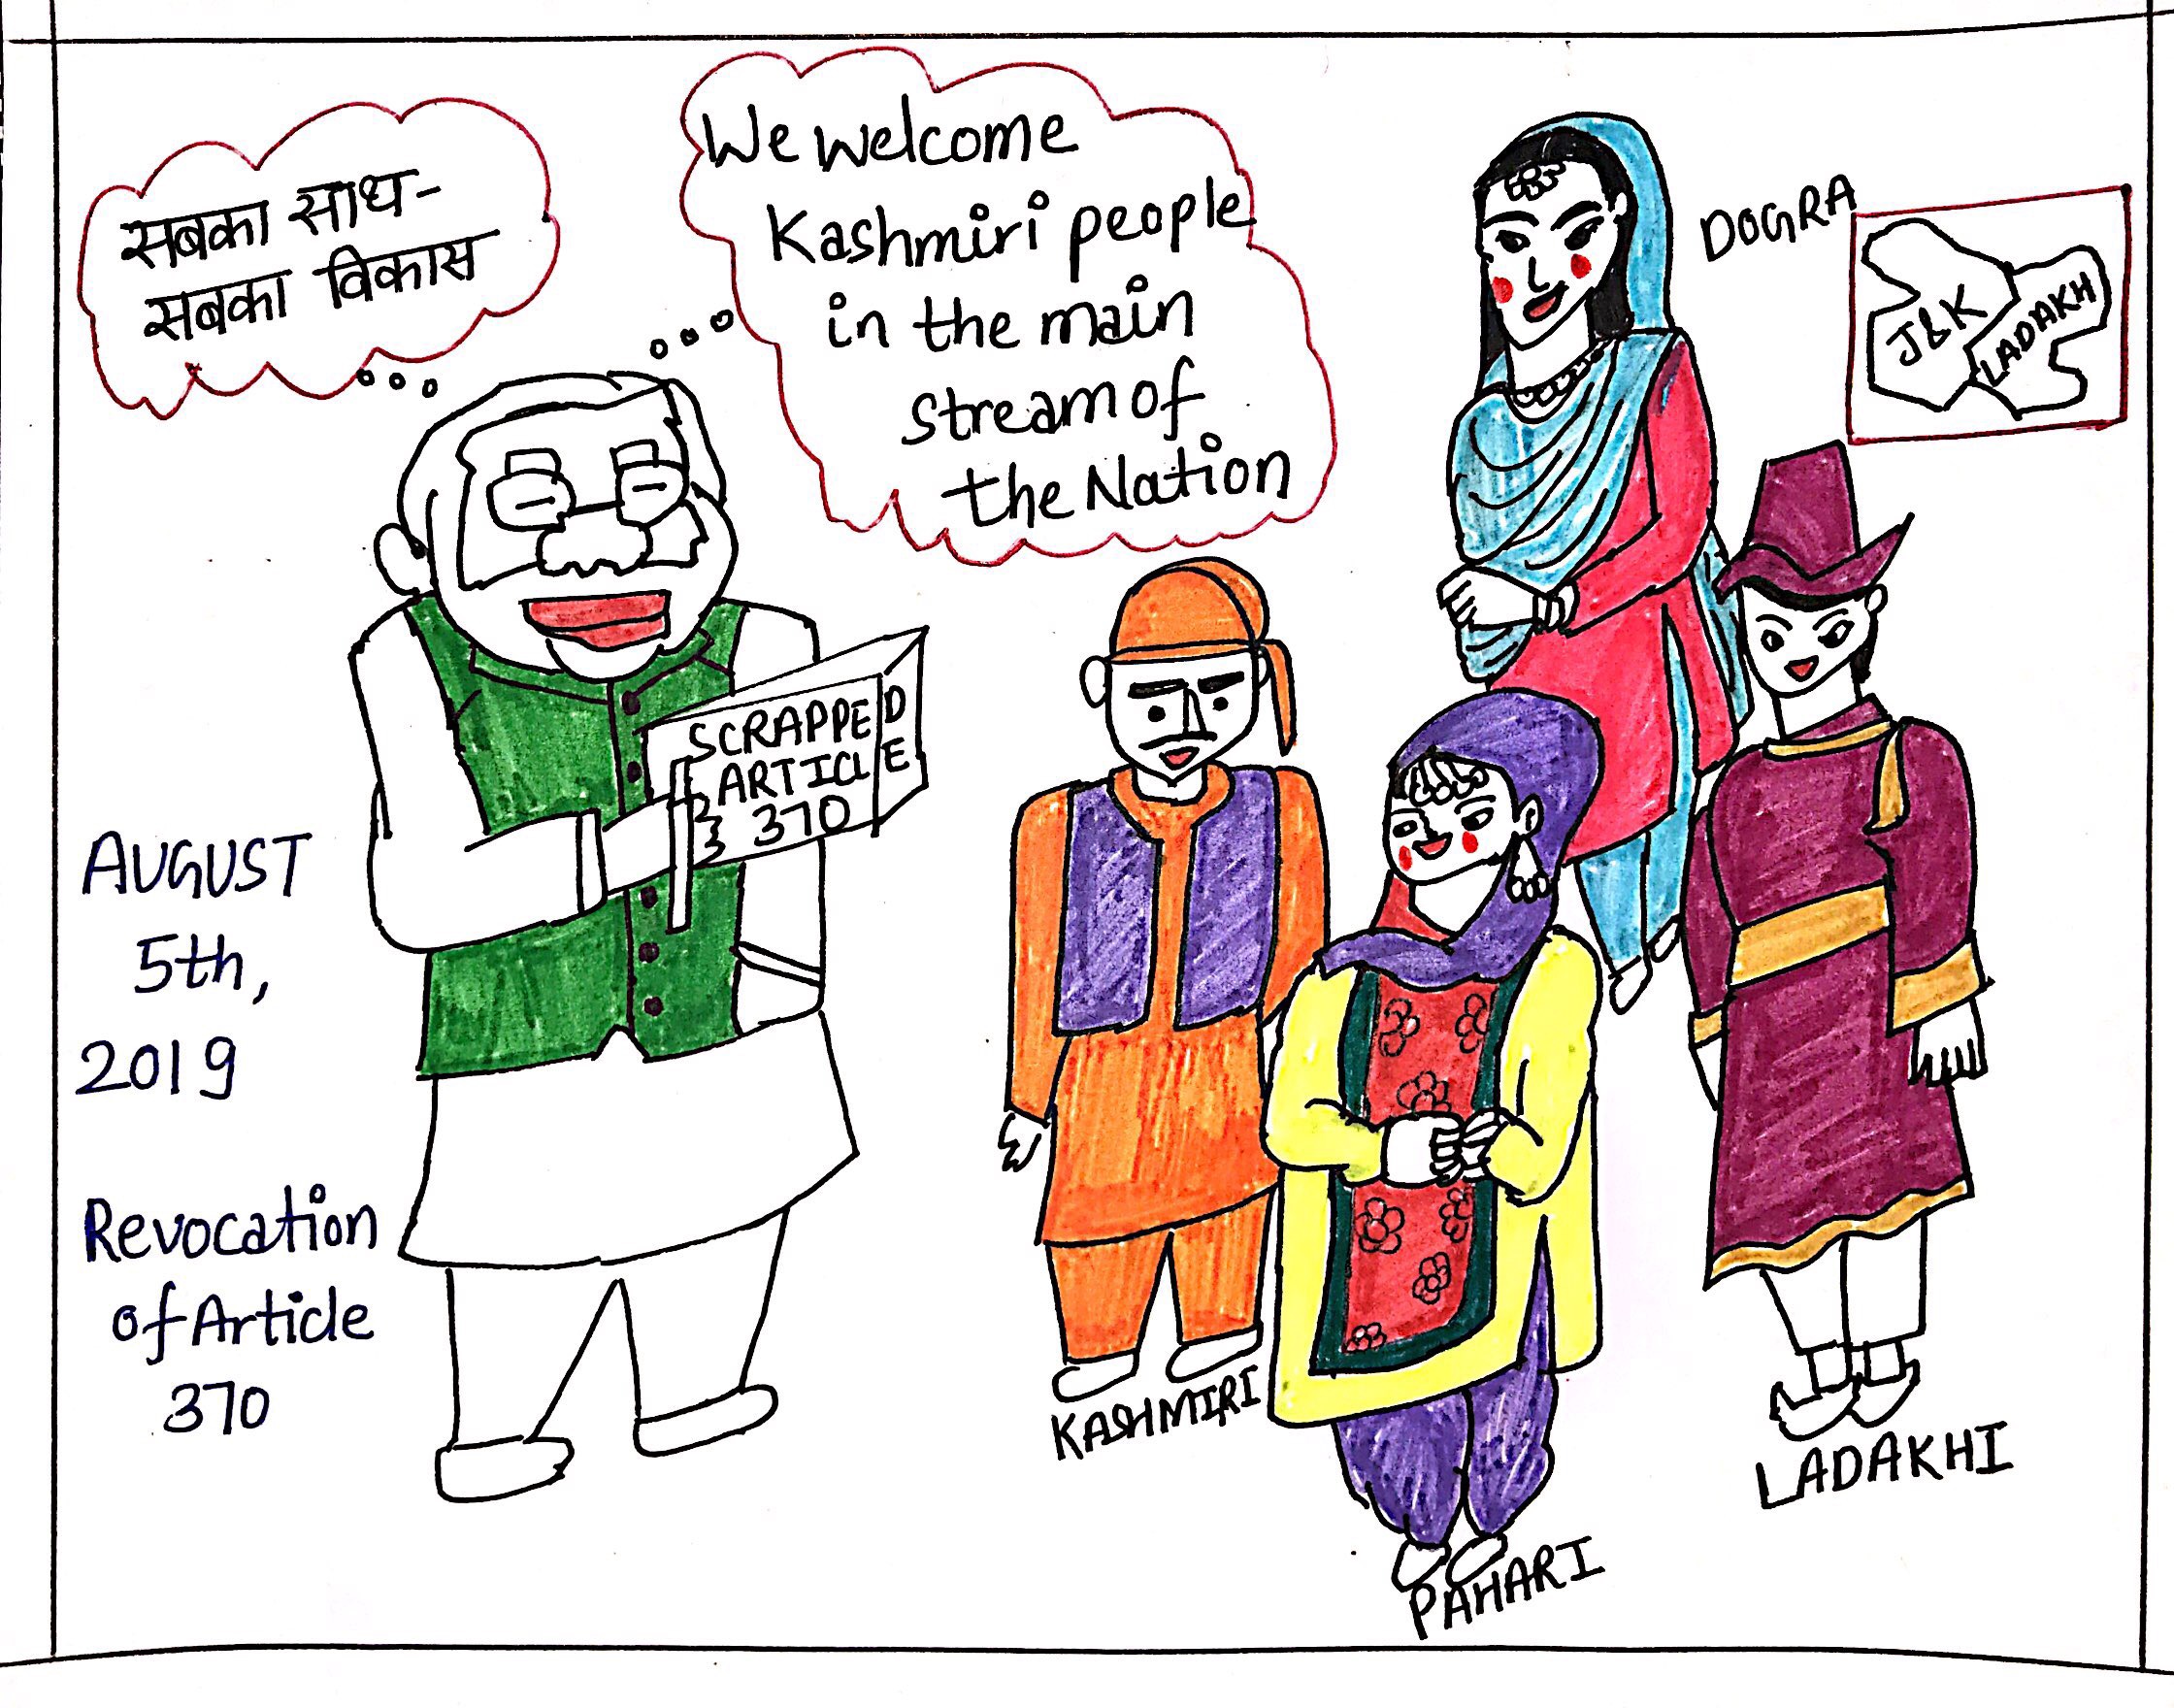 सबका साथ-
सबका विकास
We welcome
Kashmiri people
in the main
stream of
the Nation
DOGRA
J&K
LADAKH
SCRAPPED
ARTICLE
370
AUGUST
5th,
2019
Revocation
of Article
370
KASHMIRI
PAHARI
LADAKHI